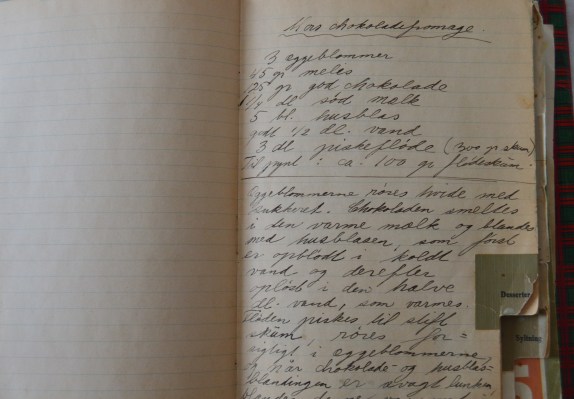 Mors chokoladefromage.
3 eggeblommer
45 gr melis
75 gr god chokolade
1 1/4 dl sød mælk
5 bl. husblas
godt 1/2 dl. vand
3 dl piskefløde (300 gr skum)
Til pynt : ca. 100 gr flødeskum.
Eggeblommerne røres hvide med
sukkeret. Chokoladen smeltes
i den varme mælk og blandes
med husblasen, som først
er opblødt i koldt
vand og derefter
opløst i den halve
dl. vand, som varmes.
Fløden piskes til stift
skum, røres for=
sigtigt i eggeblommerne,
og når chokolade- og husblas-
blandingen er svagt lunken
Desserter
Syltning
5